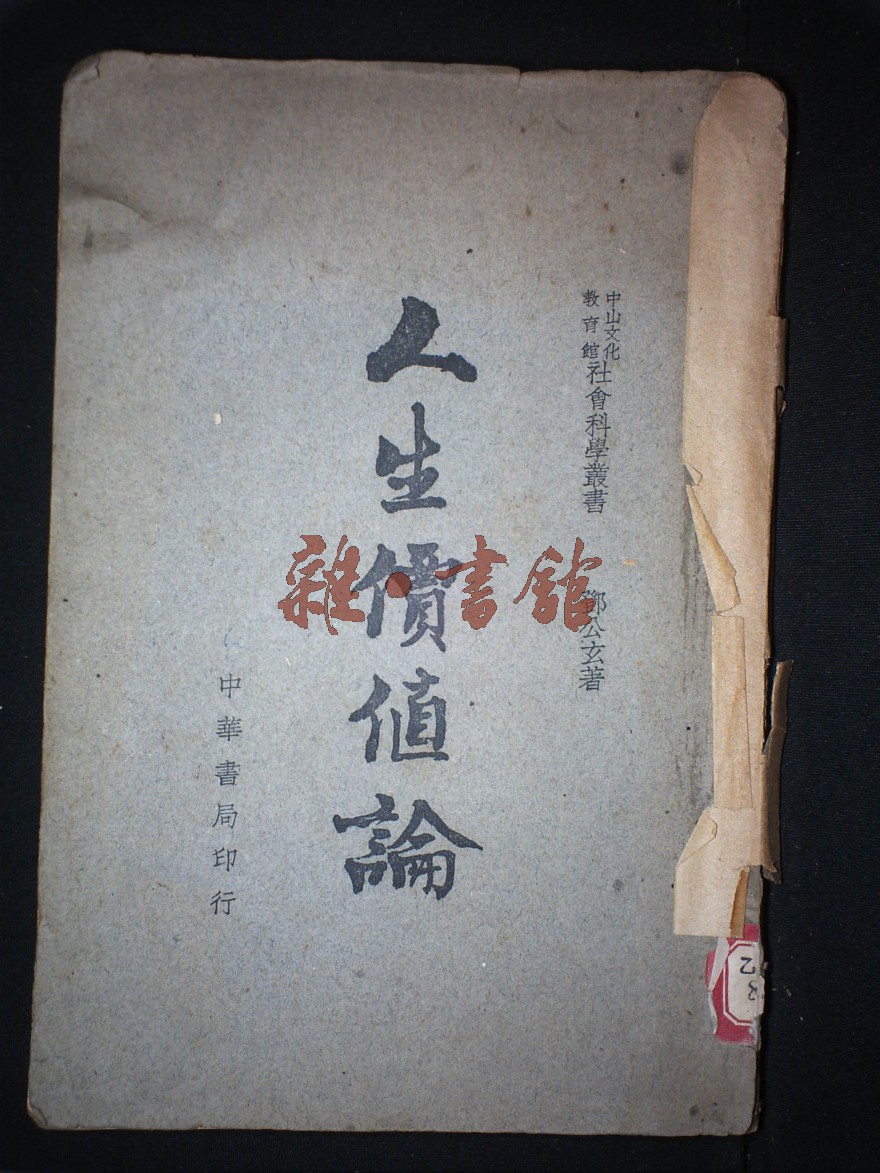 中山文化
教育館
社會科學叢書
鄧公玄著
人生價值論
中華書局印行
雜·書館
乙